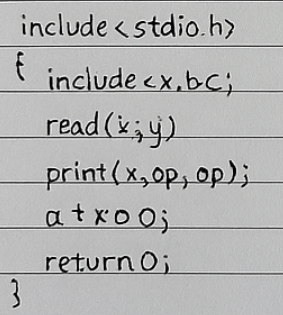 include<stdio.h>
{
include<x.bc;
read(x;y)
print(x,op,op);
a+x·00;
return0;
}